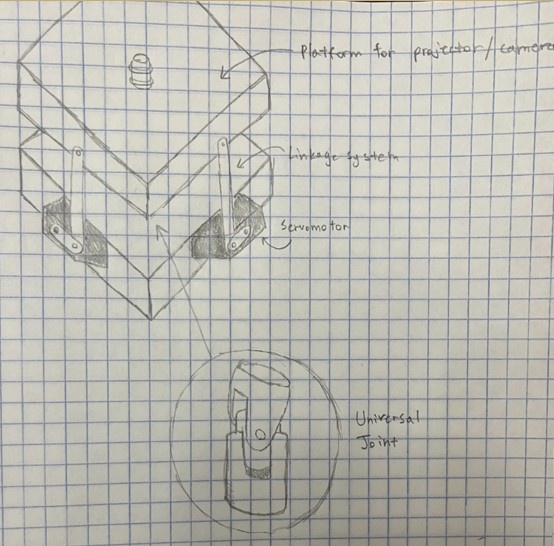 Platform for projector/camera
Linkage system
Servomotor
Universal
Joint